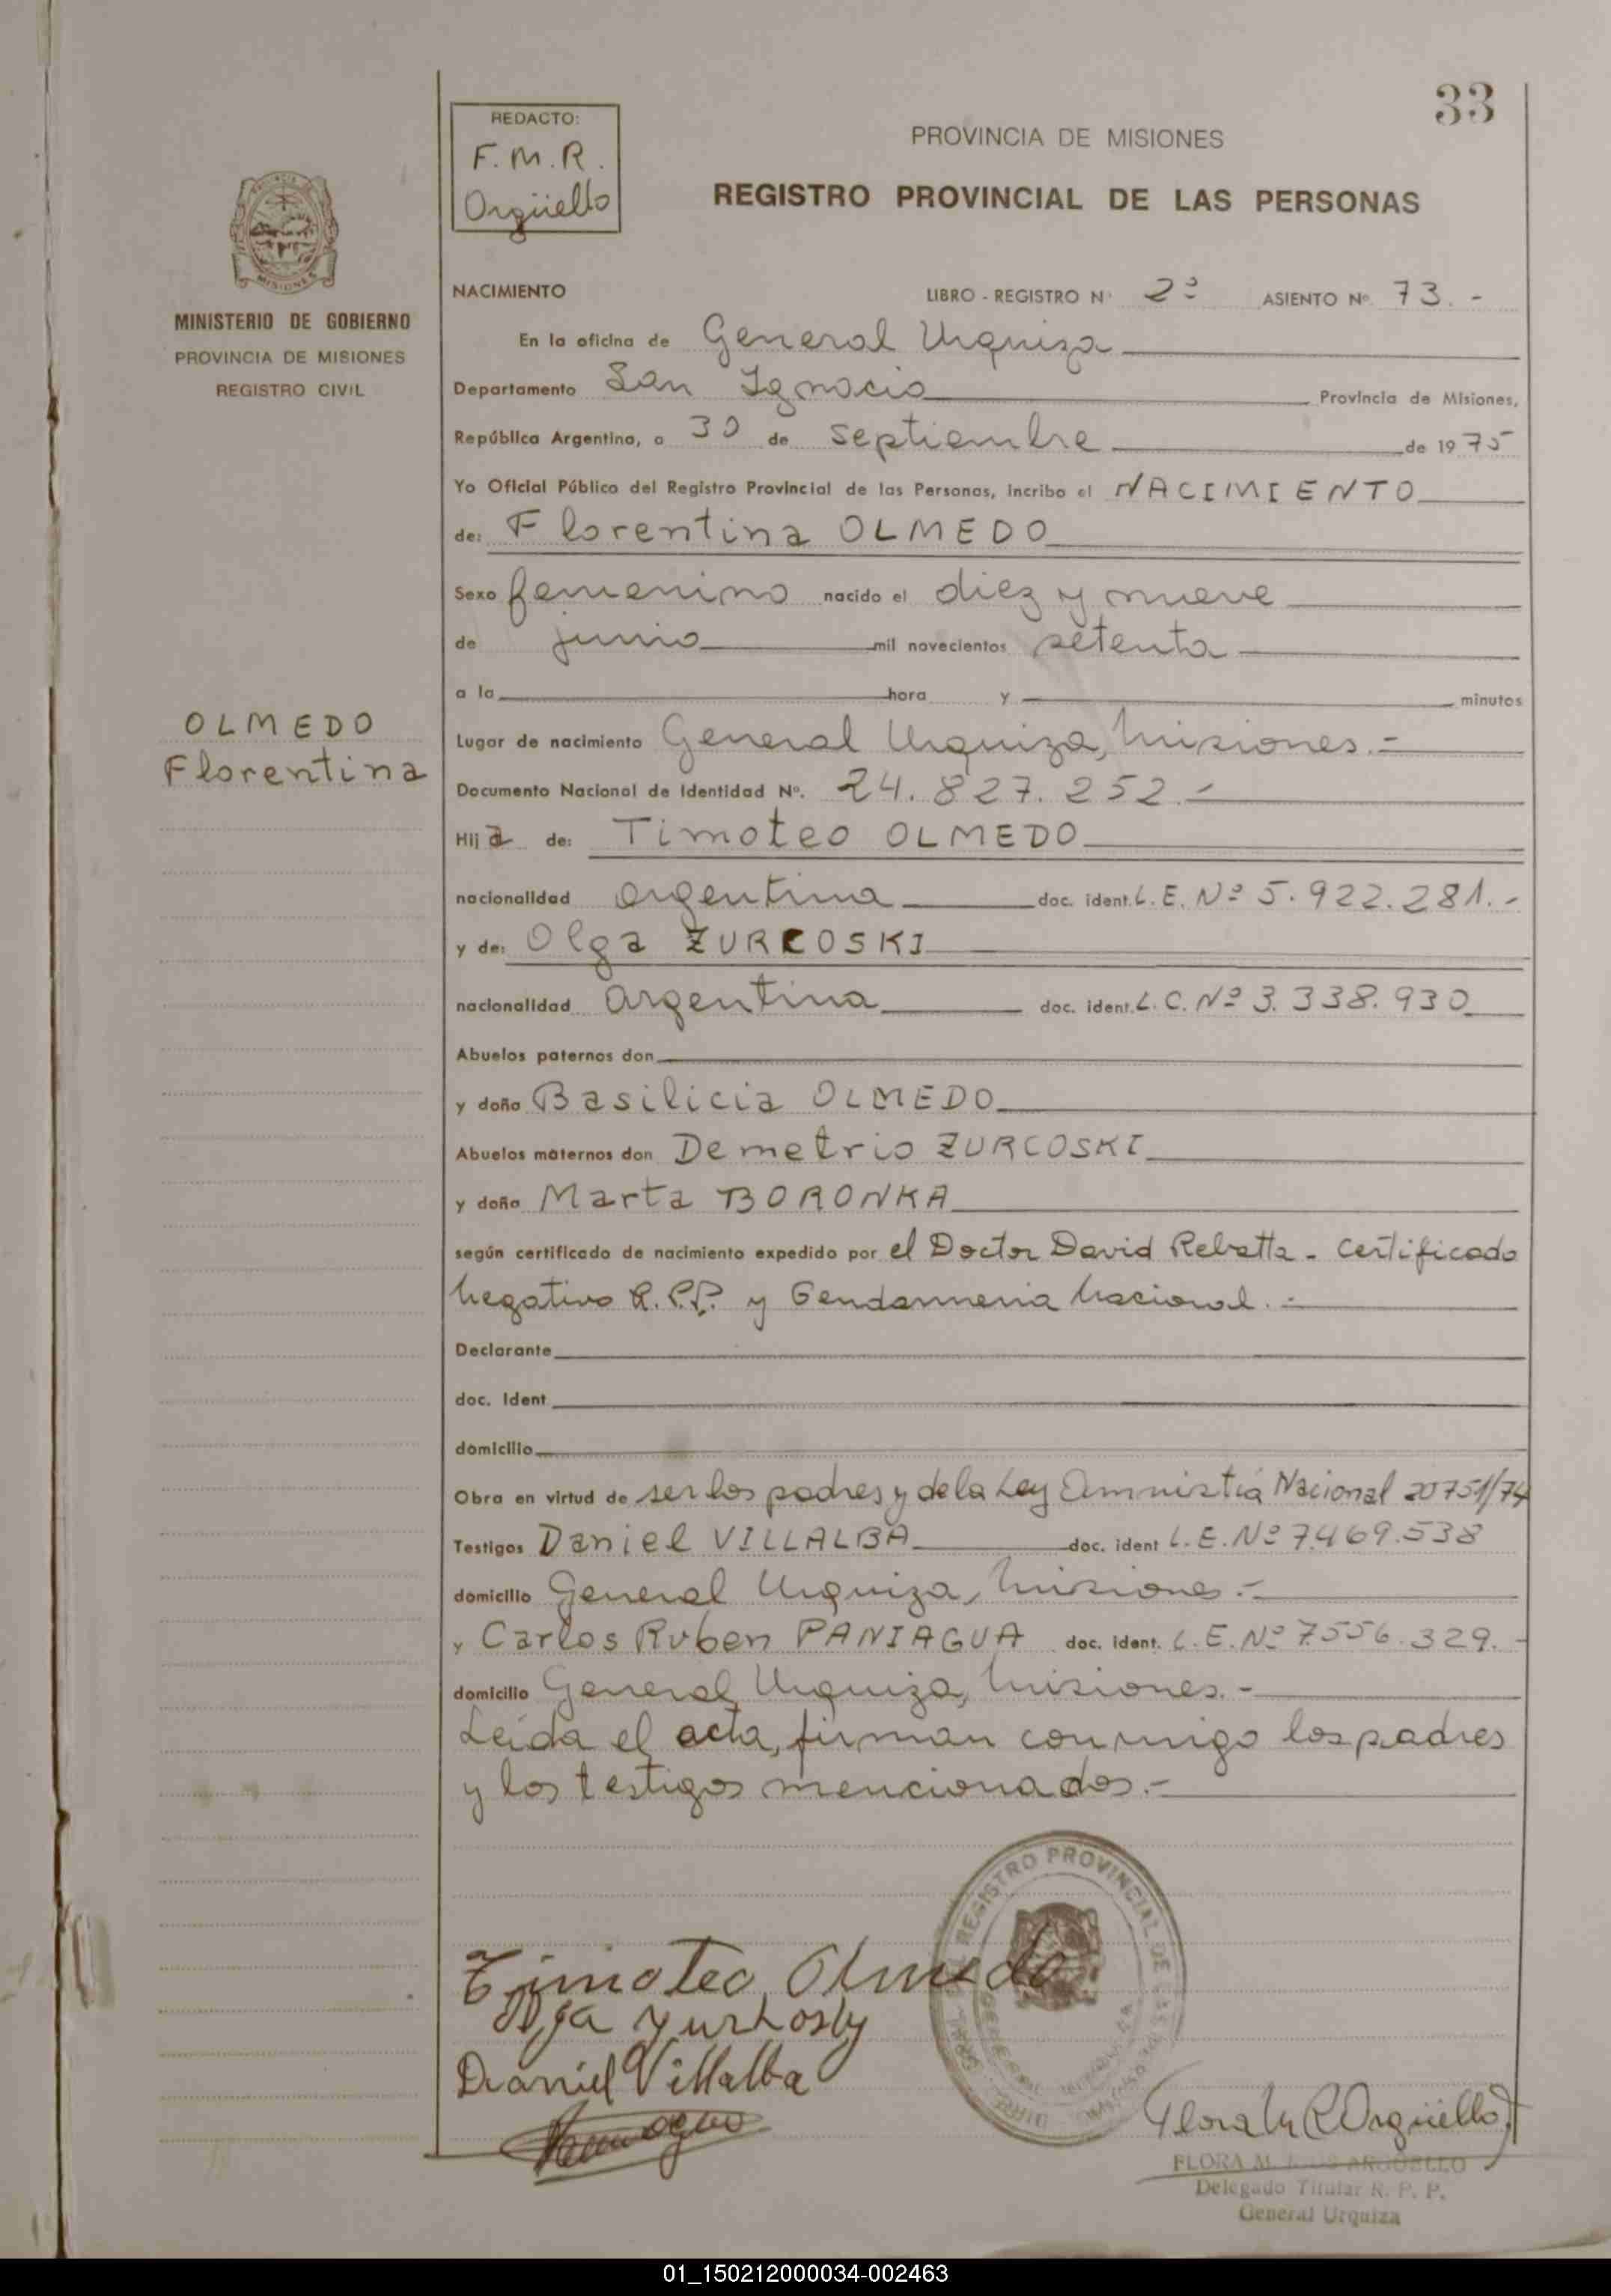 33
REDACTO:
F.M.R.
Argüello
PROVINCIA DE MISIONES
REGISTRO PROVINCIAL DE LAS PERSONAS
MISIONES
MINISTERIO DE GOBIERNO
PROVINCIA DE MISIONES
REGISTRO CIVIL
NACIMIENTO LIBRO - REGISTRO Nº 2º ASIENTO Nº 73.-
En la oficina de General Urquiza
Departamento San Ignacio Provincia de Misiones,
República Argentina, a 30 de septiembre de 1975
Yo Oficial Público del Registro Provincial de las Personas, incribo el NACIMIENTO
de: Florentina OLMEDO
Sexo femenino nacido el diez y nueve
de junio mil novecientos setenta
a la hora y minutos
OLMEDO
Florentina
Lugar de nacimiento General Urquiza, Misiones.-
Documento Nacional de Identidad Nº. 24.827.252.-
Hija de: Timoteo OLMEDO
nacionalidad argentina doc. ident. L.E. Nº 5.922.281.-
y de: Olga ZURCOSKI
nacionalidad argentina doc. ident. L.C. Nº 3.338.930
Abuelos paternos don
y doña Basilicia OLMEDO
Abuelos maternos don Demetrio ZURCOSKI
y doña Marta BORONKA
según certificado de nacimiento expedido por el Doctor David Rebatta - certificado
negativo R.P.P. y Gendarmeria Nacional.-
Declarante
doc. Ident
domicilio
Obra en virtud de ser los padres y de la Ley Amnistia Nacional 20751/74
Testigos Daniel VILLALBA doc. ident L.E. Nº 7.469.538
domicilio General Urquiza, Misiones.-
y Carlos Ruben PANIAGUA doc. ident. L.E. Nº 7.556.329.-
domicilio General Urquiza, Misiones.-
Leida el acta, firman conmigo los padres
y los testigos mencionados.-
REGISTRO PROVINCIAL DE LAS
Timoteo Olmedo
Olga Yurkosky
Daniel Villalba
Flora M R Argüello
FLORA M. ARGÜELLO
Delegado Titular R. P. P.
General Urquiza
01_150212000034-002463